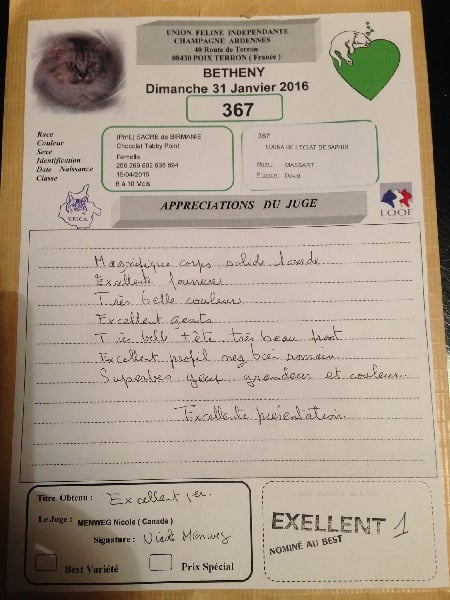 UNION FELINE INDEPENDANTE
CHAMPAGNE ARDENNES
40 Route de Terron
08430 POIX TERRON ( France )
BETHENY
Dimanche 31 Janvier 2016
367
Race
Couleur
Sexe
Identification
Date Naissance
Classe
SACRE de BIRMANIE
Chocolat Tabby Point
Femelle
15/04/2015
6 à 10 Mois
367
LOUNA DE L'ECLAT DE SAPHIR
MASSART
David
LOOF
APPRECIATIONS DU JUGE
Magnifique corps solide lourde
Excellente fourrure
Très belle couleur
Excellent gants
Très belle tête très beau front
Excellent profil nez bien romain
Superbes yeux grandeur et couleur
Excellente présentation
Titre Obtenu : Excellent 1er
Le Juge : MENWEG Nicole ( Canada )
Signature : Menweg
Best Variété
Prix Spécial
EXELLENT 1
NOMINÉ AU BEST